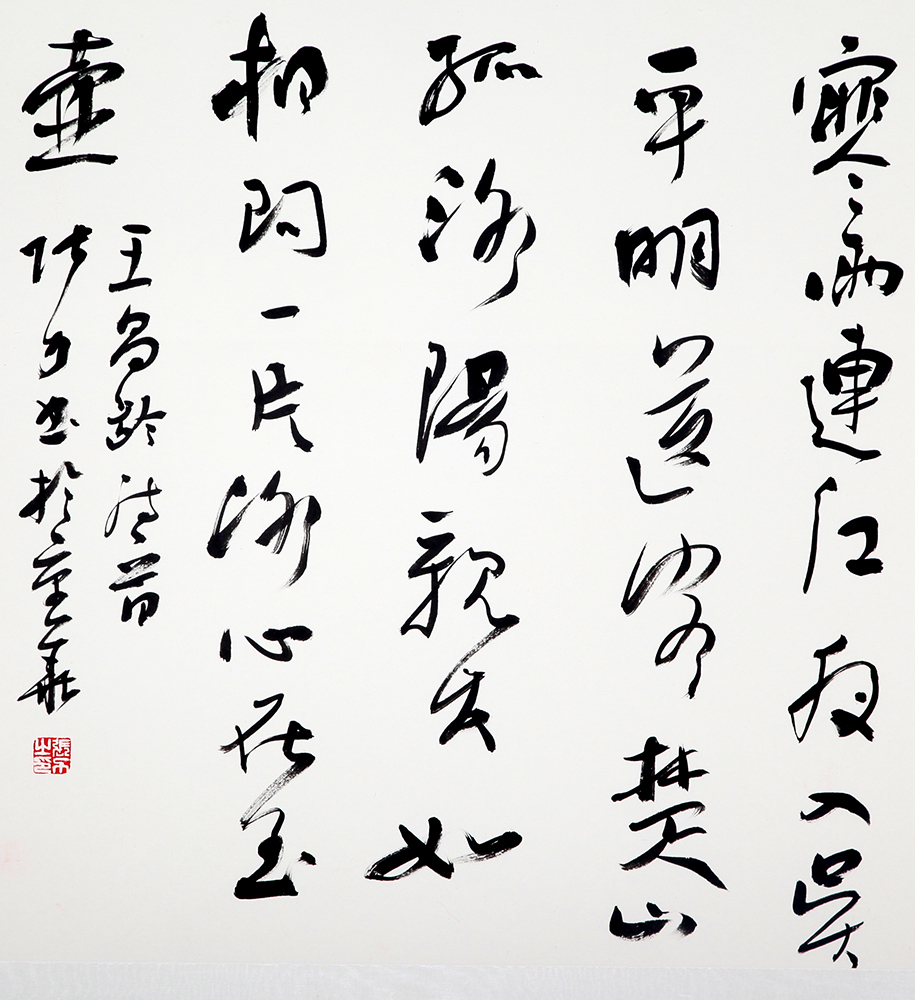 寒雨連江夜入吳
平明送客楚山
孤洛陽親友如
相問一片冰心在玉
壺
王昌齡詩首
張書於華